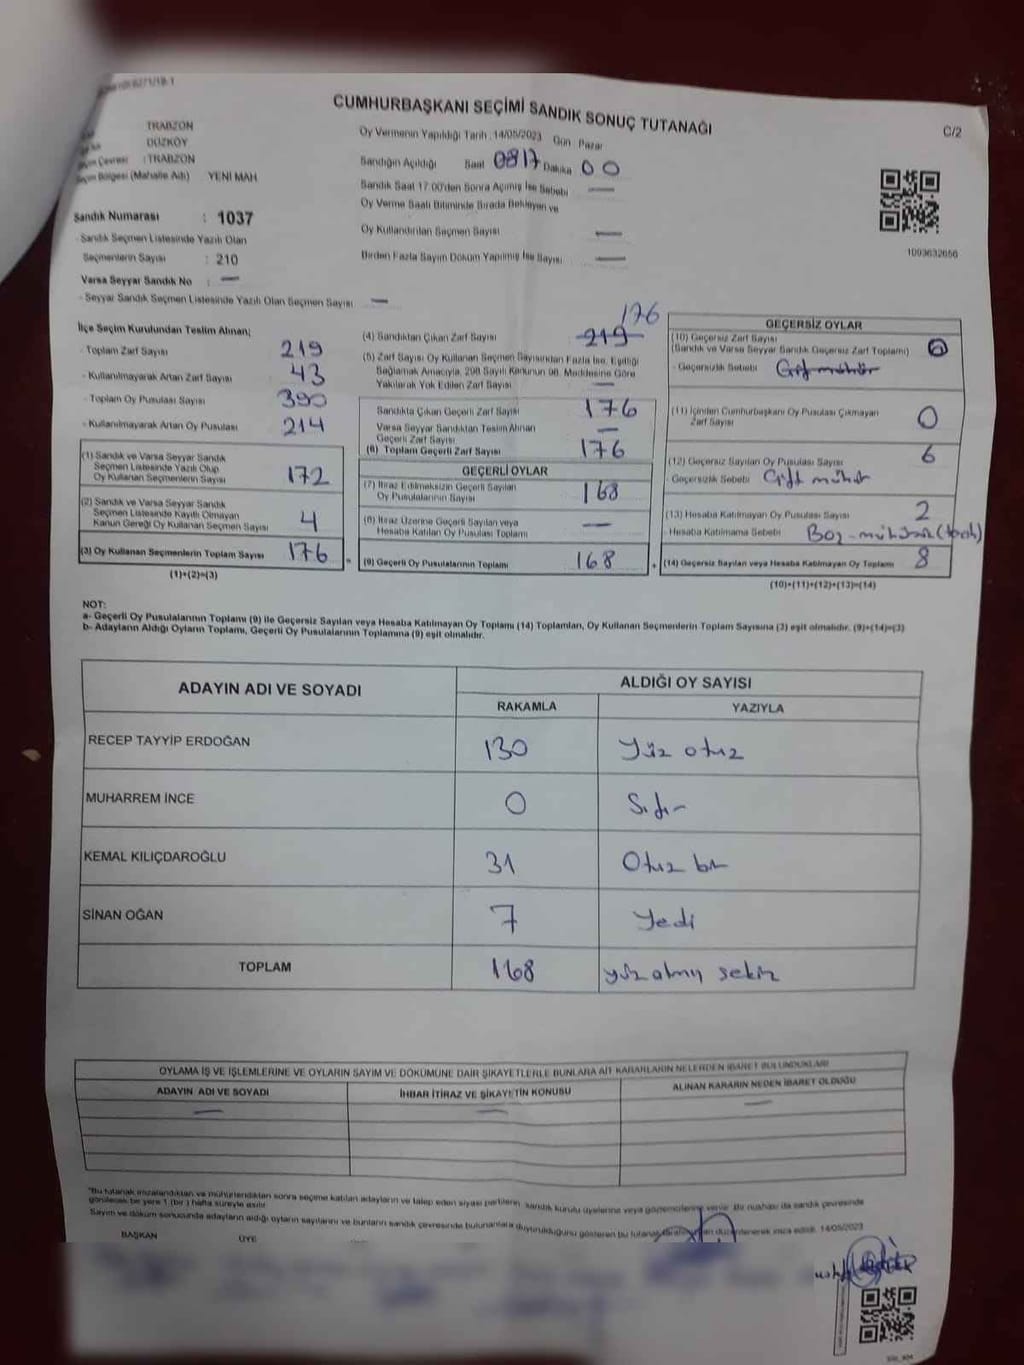 CUMHURBAŞKANI SEÇİMİ SANDIK SONUÇ TUTANAĞI
C/2
TRABZON
DÜZKÖY
Seçim Çevresi : TRABZON
Seçim Bölgesi (Mahalle Adı) YENİ MAH
Oy Vermenin Yapıldığı Tarih : 14/05/2023 Gün Pazar
Sandığın Açıldığı Saat 0817 Dakika 00
Sandık Saat 17:00'den Sonra Açılmış İse Sebebi —
Oy Verme Saati Bitiminde Sırada Bekleyen ve
Oy Kullandırılan Seçmen Sayısı —
Birden Fazla Sayım Döküm Yapılmış İse Sayısı —
1093632656
Sandık Numarası : 1037
- Sandık Seçmen Listesinde Yazılı Olan
Seçmenlerin Sayısı : 210
Varsa Seyyar Sandık No : —
- Seyyar Sandık Seçmen Listesinde Yazılı Olan Seçmen Sayısı —
İlçe Seçim Kurulundan Teslim Alınan;
- Toplam Zarf Sayısı 219
- Kullanılmayarak Artan Zarf Sayısı 43
- Toplam Oy Pusulası Sayısı 390
- Kullanılmayarak Artan Oy Pusulası 214
(1) Sandık ve Varsa Seyyar Sandık
Seçmen Listesinde Yazılı Olup
Oy Kullanan Seçmenlerin Sayısı 172
(2) Sandık ve Varsa Seyyar Sandık
Seçmen Listesinde Kayıtlı Olmayan
Kanun Gereği Oy Kullanan Seçmen Sayısı 4
(3) Oy Kullanan Seçmenlerin Toplam Sayısı 176
(1)+(2)=(3)
176
(4) Sandıktan Çıkan Zarf Sayısı 219
(5) Zarf Sayısı Oy Kullanan Seçmen Sayısından Fazla İse, Eşitliği
Sağlamak Amacıyla, 298 Sayılı Kanunun 98. Maddesine Göre
Yakılarak Yok Edilen Zarf Sayısı —
Sandıkta Çıkan Geçerli Zarf Sayısı 176
Varsa Seyyar Sandıktan Teslim Alınan
Geçerli Zarf Sayısı —
(6) Toplam Geçerli Zarf Sayısı 176
GEÇERLİ OYLAR
(7) İtiraz Edilmeksizin Geçerli Sayılan
Oy Pusulalarının Sayısı 168
(8) İtiraz Üzerine Geçerli Sayılan veya
Hesaba Katılan Oy Pusulası Toplamı —
= (9) Geçerli Oy Pusulalarının Toplamı 168
GEÇERSİZ OYLAR
(10) Geçersiz Zarf Sayısı
(Sandık ve Varsa Seyyar Sandık Geçersiz Zarf Toplamı) 0
- Geçersizlik Sebebi Çift mühür
(11) İçinden Cumhurbaşkanı Oy Pusulası Çıkmayan
Zarf Sayısı 0
(12) Geçersiz Sayılan Oy Pusulası Sayısı 6
- Geçersizlik Sebebi Çift mühür
(13) Hesaba Katılmayan Oy Pusulası Sayısı 2
- Hesaba Katılmama Sebebi
+ (14) Geçersiz Sayılan veya Hesaba Katılmayan Oy Toplamı 8
(10)+(11)+(12)+(13)=(14)
NOT:
a- Geçerli Oy Pusulalarının Toplamı (9) ile Geçersiz Sayılan veya Hesaba Katılmayan Oy Toplamı (14) Toplamları, Oy Kullanan Seçmenlerin Toplam Sayısına (3) eşit olmalıdır. (9)+(14)=(3)
b- Adayların Aldığı Oyların Toplamı, Geçerli Oy Pusulalarının Toplamına (9) eşit olmalıdır.
ADAYIN ADI VE SOYADI ALDIĞI OY SAYISI
RAKAMLA YAZIYLA
RECEP TAYYİP ERDOĞAN 130 Yüz otuz
MUHARREM İNCE 0 Sıfır
KEMAL KILIÇDAROĞLU 31 Otuz bir
SİNAN OĞAN 7 Yedi
TOPLAM 168 yüz altmış sekiz
OYLAMA İŞ VE İŞLEMLERİNE VE OYLARIN SAYIM VE DÖKÜMÜNE DAİR ŞİKAYETLERLE BUNLARA AİT KARARLARIN NELERDEN İBARET BULUNDUKLARI
ADAYIN ADI VE SOYADI İHBAR İTİRAZ VE ŞİKAYETİN KONUSU ALINAN KARARIN NEDEN İBARET OLDUĞU
— — —
"Bu tutanak imzalandıktan ve mühürlendikten sonra seçime katılan adayların ve talep eden siyasi partilerin sandık kurulu üyelerine veya gözlemcilerine verilir. Bir nüshası da sandık çevresinde
görülecek bir yere 1 (bir) hafta süreyle asılır.
Sayım ve döküm sonucunda adayların aldığı oyların sayılarını ve bunların sandık çevresinde bulunanlara duyurulduğunu gösteren bu tutanak düzenlenerek imza edildi. 14/05/2023
BAŞKAN ÜYE